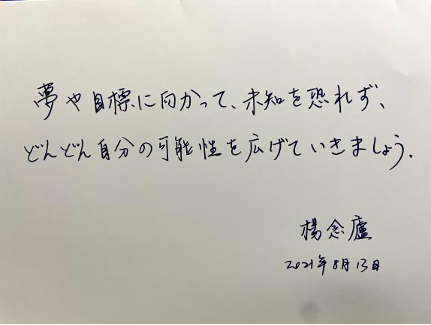 夢や目標に向かって、未知を恐れず、
どんどん自分の可能性を広げていきましょう.
楊念廬
2021年8月13日